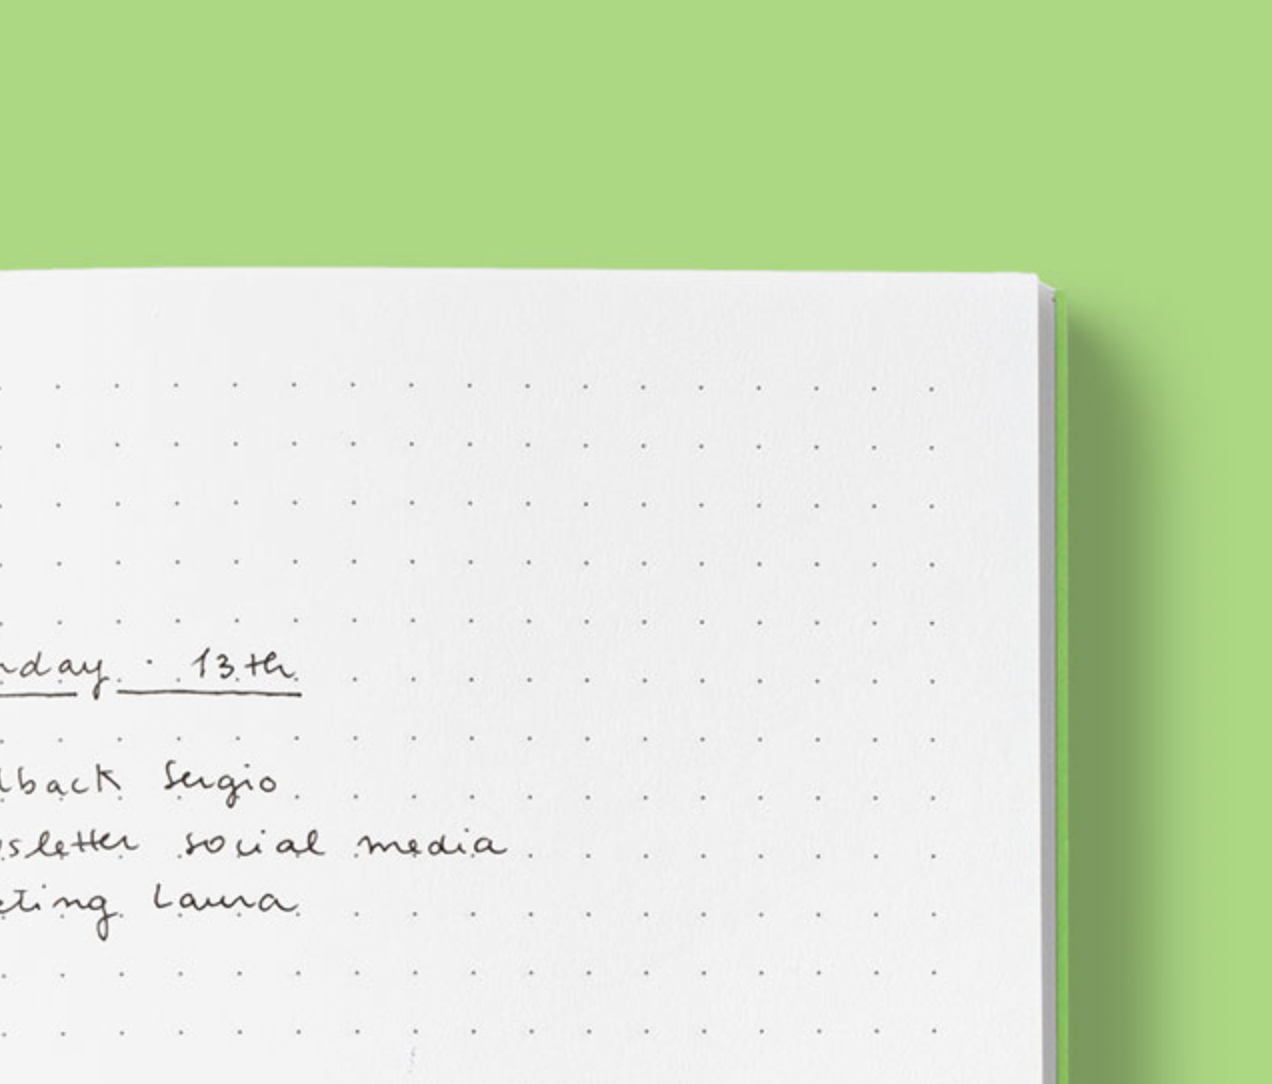 nday · 13th
dback Sergio
wsletter social media
eting Laura